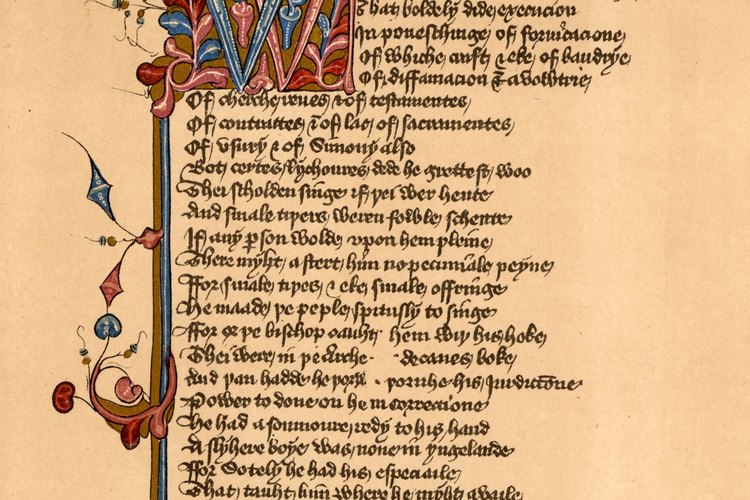 That boldely dede execucion
In poneschinge of fornicacione
Of whiche craft & eke of baudrye
Of diffamacion & avowtrie
Of cherche reves & of testamentes
Of contrattes & of lac of sacramentes
Of usury & of Simony also
Bot certes lychoures dede he grettest woo
Thei scholden singe if þei wer hente
And smale tiperes weren fowle schente
If any pson wolde vpon hem pleine
There myht astert him no pecuniale peyne
Ffor smale tiþes & eke smale offringe
He maade þe peple spitusly to singe
Ffor or þe bisschop cauht hem wiþ his hoke
Thei were in þe Erche decanes boke
And þan hadde he þorw his Jurediccione
Power to done on hem correccione
He had a somnoure redy to his hand
A slyhere boye was none in yngelande
Ffor Sotely he had his especiaile
That tauht him where he myht availe